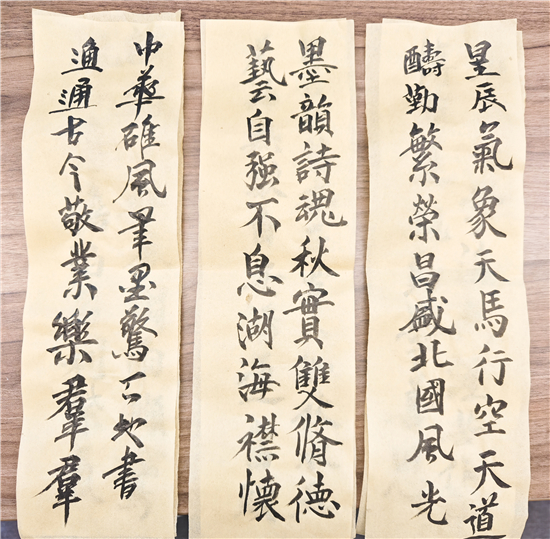 星辰氣象天馬行空天道
醻勤繁榮昌盛北國風光
墨韻詩魂秋實雙脩德
藝自强不息湖海襟懷
中華雄風筆墨驚書
通古今敬業樂羣羣